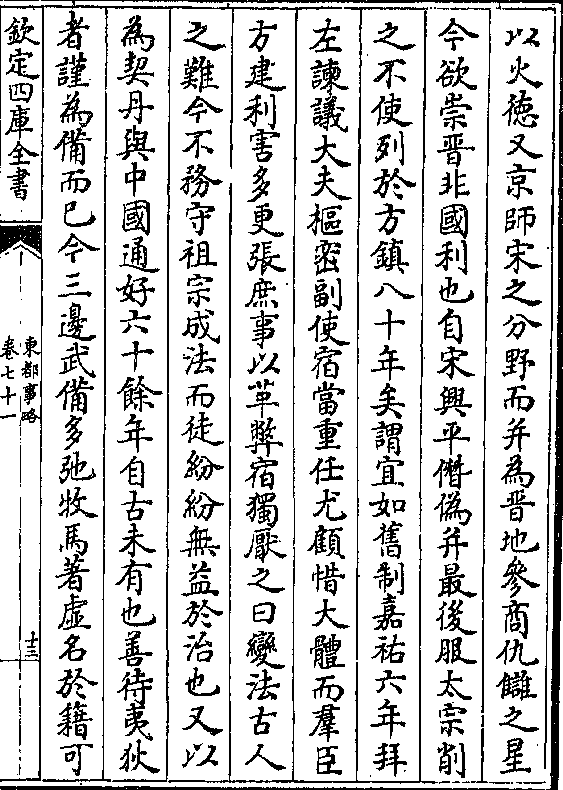 以火徳又京師宋之分野而并為晋地參商仇讎之星
今欲崇晋非國利也自宋興平僭偽并最後服太宗削
之不使列於方鎮八十年矣謂宜如舊制嘉祐六年拜
左諫議大夫樞密副使宿當重任尤顧惜大體而羣臣
方建利害多更張庶事以革弊宿獨厭之曰變法古人
之難今不務守祖宗成法而徒紛紛無益於治也又以
為契丹與中國通好六十餘年自古未有也善待夷狄
者謹為備而已今三邊武備多弛牧馬著虚名於籍可
欽定四庫全書
東都事略
卷七十一
十三